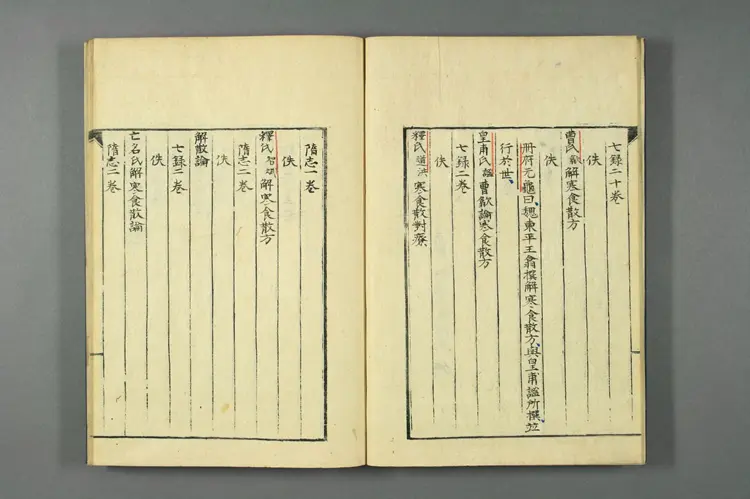 七録二十卷
佚
曹氏歙解寒食散方
佚
册府元龜曰、魏東平王翕撰解寒食散方、與皇甫謐所撰並
行於世、
皇甫氏謐曹歙論寒食散方
七録二卷
佚
釋氏道洪寒食散對療
隋志一卷
佚
釋氏智斌解寒食散方
隋志二卷
佚
解散論
七録二卷
佚
亡名氏解寒食散論
隋志二卷